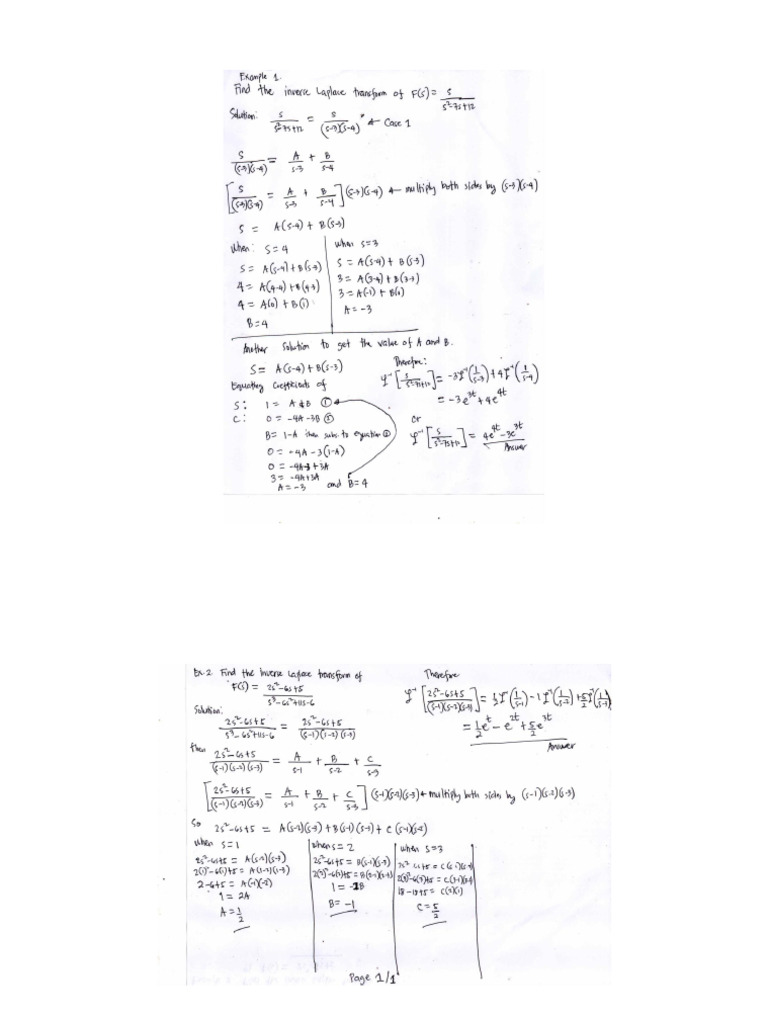 Example 1.
Find the inverse Laplace transform of F(s) = s/(s²-7s+12)
Solution: s/(s²-7s+12) = s/((s-3)(s-4)) ← Case 1
s/((s-3)(s-4)) = A/(s-3) + B/(s-4)
[s/((s-3)(s-4)) = A/(s-3) + B/(s-4)](s-3)(s-4) ← multiply both sides by (s-3)(s-4)
s = A(s-4) + B(s-3)
When: s=4
s = A(s-4) + B(s-3)
4 = A(4-4) + B(4-3)
4 = A(0) + B(1)
B=4
when s=3
s = A(s-4) + B(s-3)
3 = A(3-4) + B(3-3)
3 = A(-1) + B(0)
A = -3
Another solution to get the value of A and B.
s = A(s-4) + B(s-3)
Equating coefficients of
s: 1 = A + B ①
c: 0 = -4A -3B ②
B = 1-A then subs. to equation ②
0 = -4A -3(1-A)
0 = -4A -3 +3A
3 = -4A+3A
A = -3 and B=4
Therefore:
ℒ⁻¹[s/(s²-7s+12)] = -3ℒ⁻¹(1/(s-3)) + 4ℒ⁻¹(1/(s-4))
= -3e^3t + 4e^4t
or
ℒ⁻¹[s/(s²-7s+12)] = 4e^4t - 3e^3t
Answer
Ex. 2 Find the inverse Laplace transform of
F(s) = (2s²-6s+5)/(s³-6s²+11s-6)
Solution:
(2s²-6s+5)/(s³-6s²+11s-6) = (2s²-6s+5)/((s-1)(s-2)(s-3))
then
(2s²-6s+5)/((s-1)(s-2)(s-3)) = A/(s-1) + B/(s-2) + C/(s-3)
[(2s²-6s+5)/((s-1)(s-2)(s-3)) = A/(s-1) + B/(s-2) + C/(s-3)](s-1)(s-2)(s-3) ← multiply both sides by (s-1)(s-2)(s-3)
So
2s²-6s+5 = A(s-2)(s-3) + B(s-1)(s-3) + C(s-1)(s-2)
When s=1
2s²-6s+5 = A(s-2)(s-3)
2(1)²-6(1)+5 = A(1-2)(1-3)
2-6+5 = A(-1)(-2)
1 = 2A
A = 1/2
When s=2
2s²-6s+5 = B(s-1)(s-3)
2(2)²-6(2)+5 = B(2-1)(2-3)
1 = -1B
B = -1
when s=3
2s²-6s+5 = C(s-1)(s-2)
2(3)²-6(3)+5 = C(3-1)(3-2)
18-18+5 = C(2)(1)
C = 5/2
Therefore
ℒ⁻¹[(2s²-6s+5)/((s-1)(s-2)(s-3))] = ½ℒ⁻¹(1/(s-1)) - 1ℒ⁻¹(1/(s-2)) + 5/2ℒ⁻¹(1/(s-3))
= 1/2 e^t - e^2t + 5/2 e^3t
Answer
Page 1/1